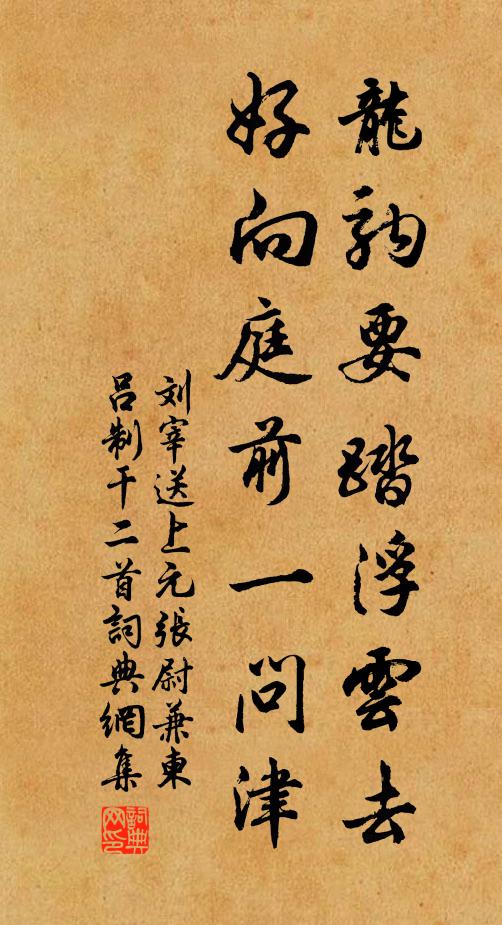 龍駒要踏浮雲去
好向庭前一問津
刘宰送上元張尉兼東
吕制干二首詞典網集
詞典
网印